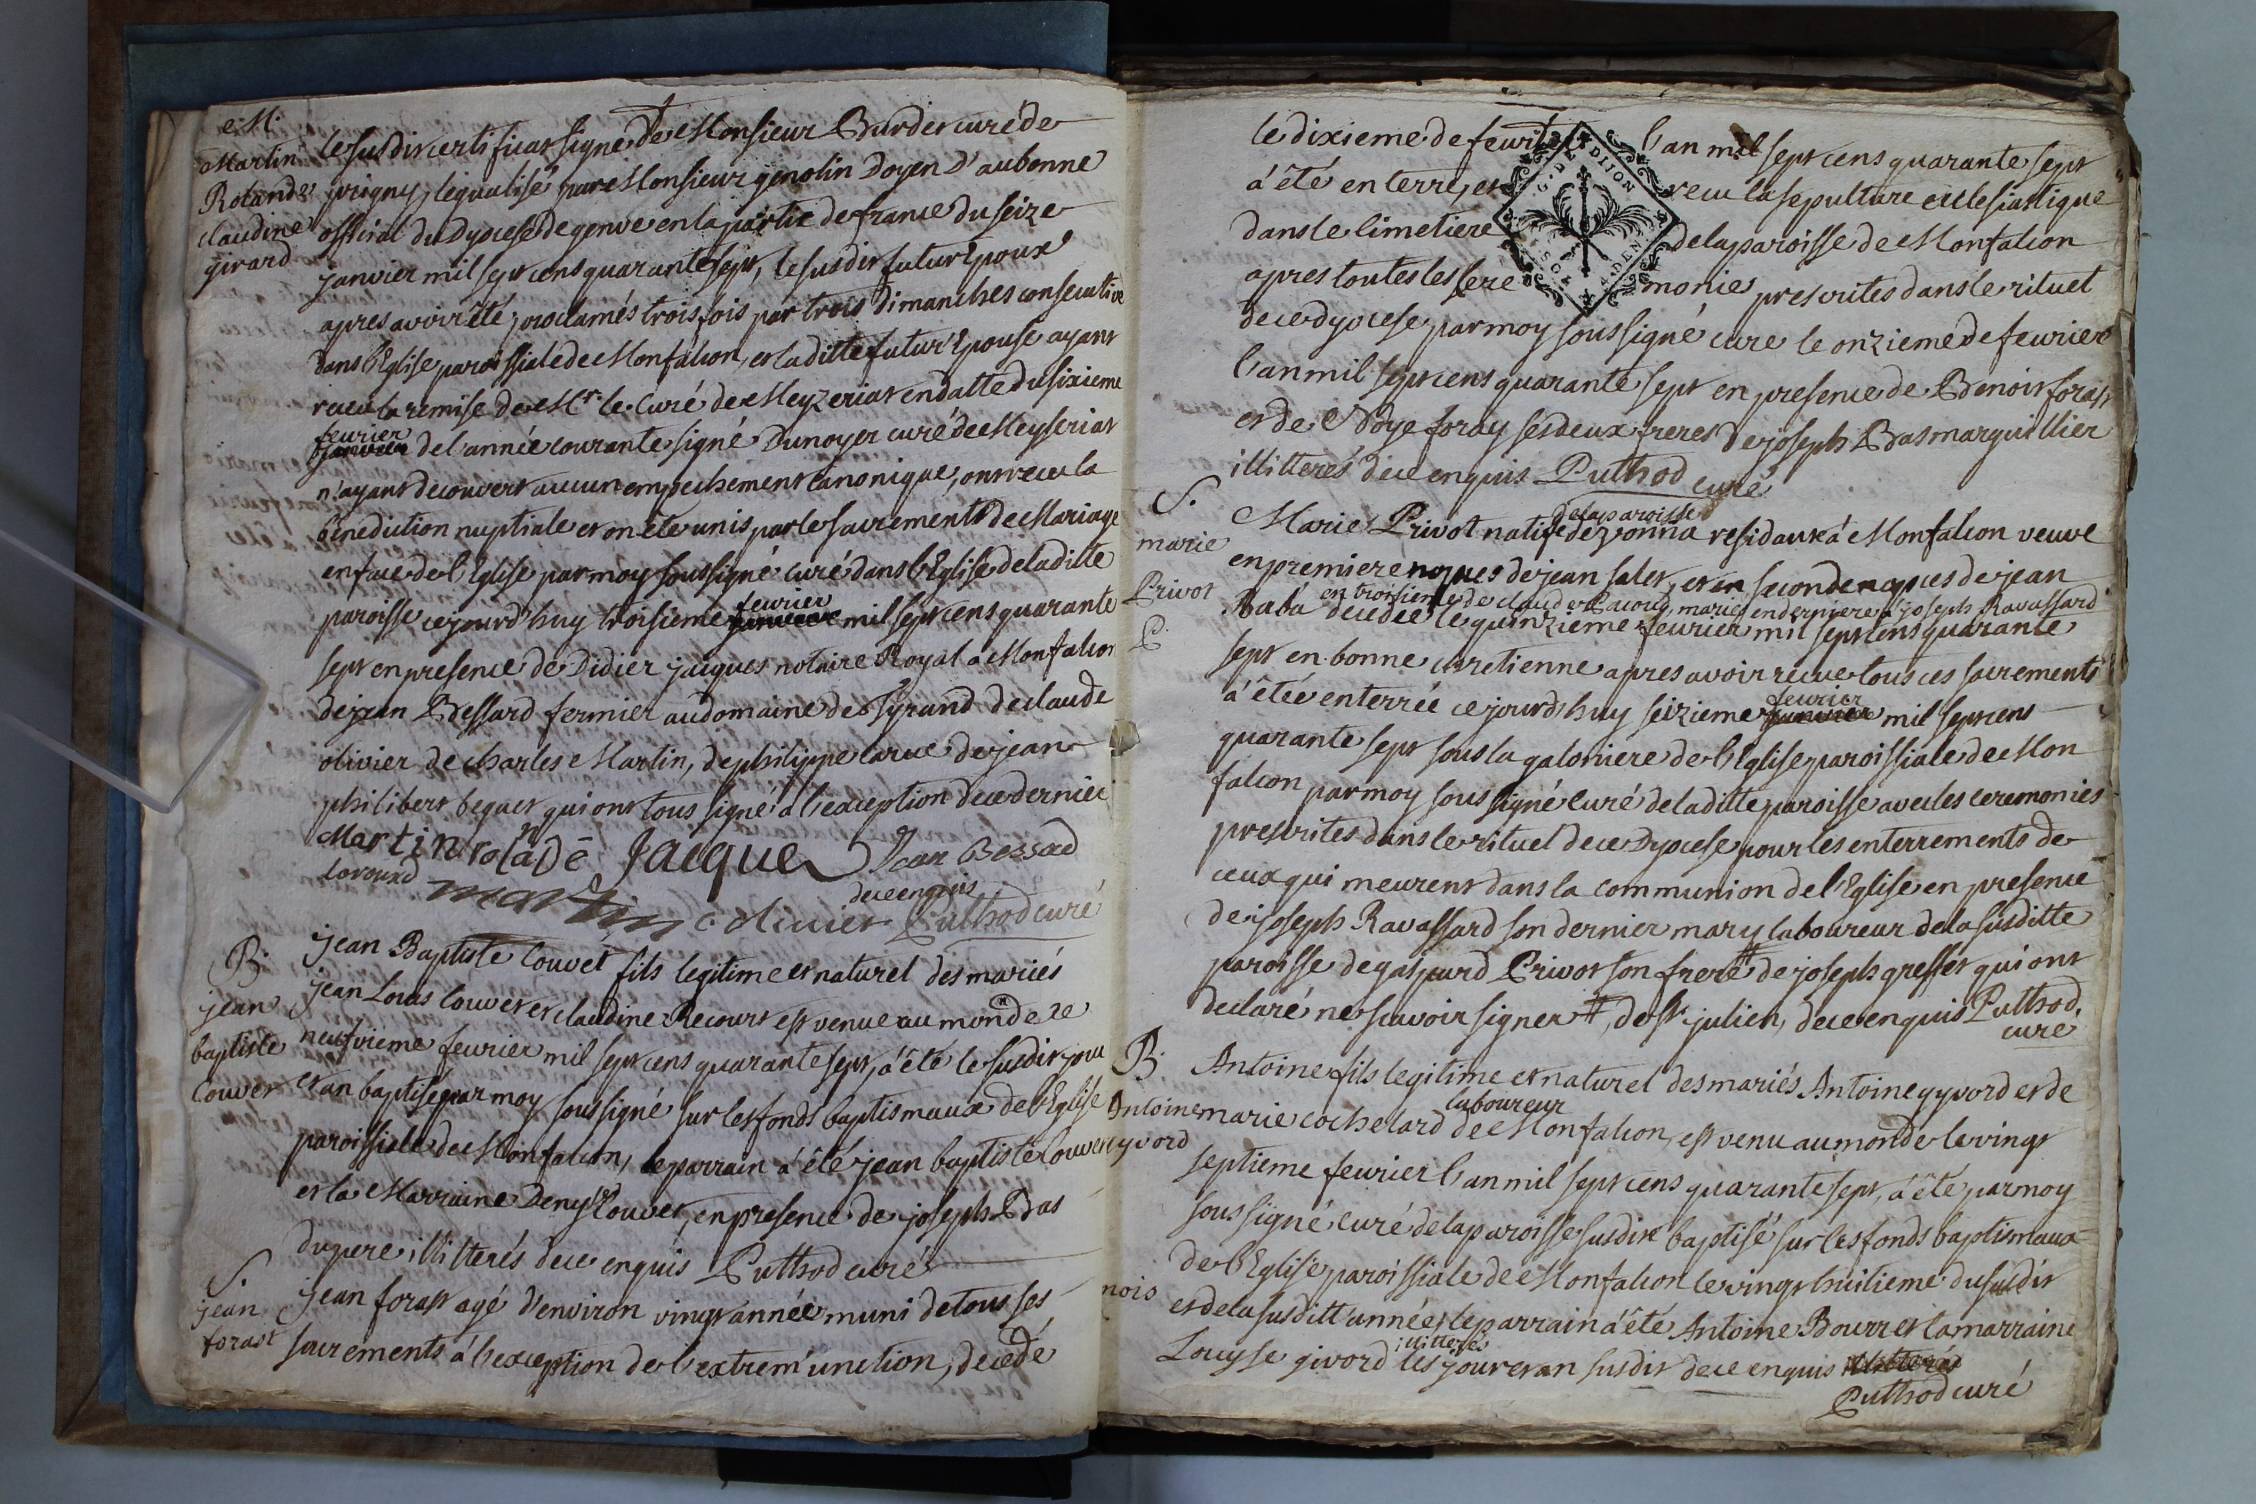 M.
Martin
Rolande
claudine
girard
le susdit certificat signé de Monsieur Burdet curé de
prigny, legualisé par Monsieur genolin Doyen D'aubonne
official du Dyocese de genve en la partie de france du seize
janvier mil sept cens quarante sept, le susdit futur Epoux
apres avoir été proclamés trois fois par trois Dimanches consecutive
dans l'Eglise paroissiale de Monfalcon, et la ditte futur' Epouse ayant
receu la remise de Mr. le Curé de Meyzeriat en datte du sixieme
fevrier
janvier de l'année courante signé Dunoyer curé de Meyseriat
n'ayant decouvert aucun empechement canonique, ont receu la
bénediction nuptiale et on été unis par le sacrements de Mariage
en face de l'Eglise par moy soussigné curé dans l'Eglise de laditte
fevrier
paroisse cejourd'huy troisieme janvier mil sept cens quarante
sept en presence de Didier jacques notaire Royal a Monfalcon
de jean Bessard fermier au domaine de Tyrand de claude
olivier de charles Martin, de philippe carue de jean
philibert beguet qui ont tous signé a l'exception de ce dernier
Martin rolade Jacque Jean Bessad
de ce enquis
martin Puthod curé
B.
jean
baptiste
Couvet
jean Baptiste Couvet fils legitime et naturel des mariés
jean Louis Couvet et claudine Recourt est venue au monde le
neufvieme fevrier mil sept cens quarante sept, a été le susdit jour
et an baptisé par moy soussigné sur les fonds baptismaux de l'Eglise
paroissiale de Monfalcon, le parrain a été jean baptiste Couvet
et la Marraine Denyse Couvet, en presence de joseph Bas
du pere illitterés de ce enquis Puthod curé
S.
jean
forast
jean forast agé d'environ vingt année muni de tous ses
sacrements á l'exception de l'extrem'unction, decedé
le dixieme de fevrier l'an mil sept cens quarante sept
á été enterré, et receu la sepulture ecclesiastique
dans le Cimetiere de la paroisse de Monfalcon
apres toutes les ceremonies prescrites dans le rituel
de ce dyocese par moy soussigné curé le onzieme de fevrier
l'an mil sept cens quarante sept en presence de Benoit forast
et de foray ses deux freres de joseph Bas marguillier
illitterés de ce enquis Puthod curé
S.
marie
Privot
de la paroisse
Marie Privot native dezonna residante á Monfalcon veuve
en premiere nopces de jean salet, et en seconde nopces de jean
en troisieme de claude Bacoug, mariée en derniere a joseph Ravassard
Baba decedée le quinzieme fevrier mil sept cens quarante
sept en bonne cretienne apres avoir recue tous ces sacrements
fevrier
a êtée enterrée ce jourd'huy seizieme janvier mil sept cens
quarante sept sous la galoniere de l'Eglise paroissiale de Mon
falcon par moy soussigné curé de laditte paroisse avec les ceremonies
prescrites dans le rituel de ce Dyocese pour les enterrements de
ceux qui meurent dans la communion de l'Eglise en presence
de joseph Ravassard son dernier mary laboureur de la susditte
paroisse de gaspard Privot son frere # de joseph greffet qui ont
declaré ne scavoir signer #, de st julien, de ce enquis Puthod
curé
B.
Antoine
gyvord
Antoine fils legitime et naturel des mariés Antoine gyvord et de
laboureur
marie cochelard de Monfalcon, est venu au monde le vingt
septieme fevrier l'an mil sept cens quarante sept, á été par moy
sous signé curé de la paroisse susdite baptisé sur les fonds baptismaux
de l'Eglise paroissiale de Monfalcon le vingt huitieme du susdit
et de la susditt'année et le parrain a été Antoine Bourr et la marraine
illitterés
Louyse givord les jour et an susdit de ce enquis
Puthod curé
nois